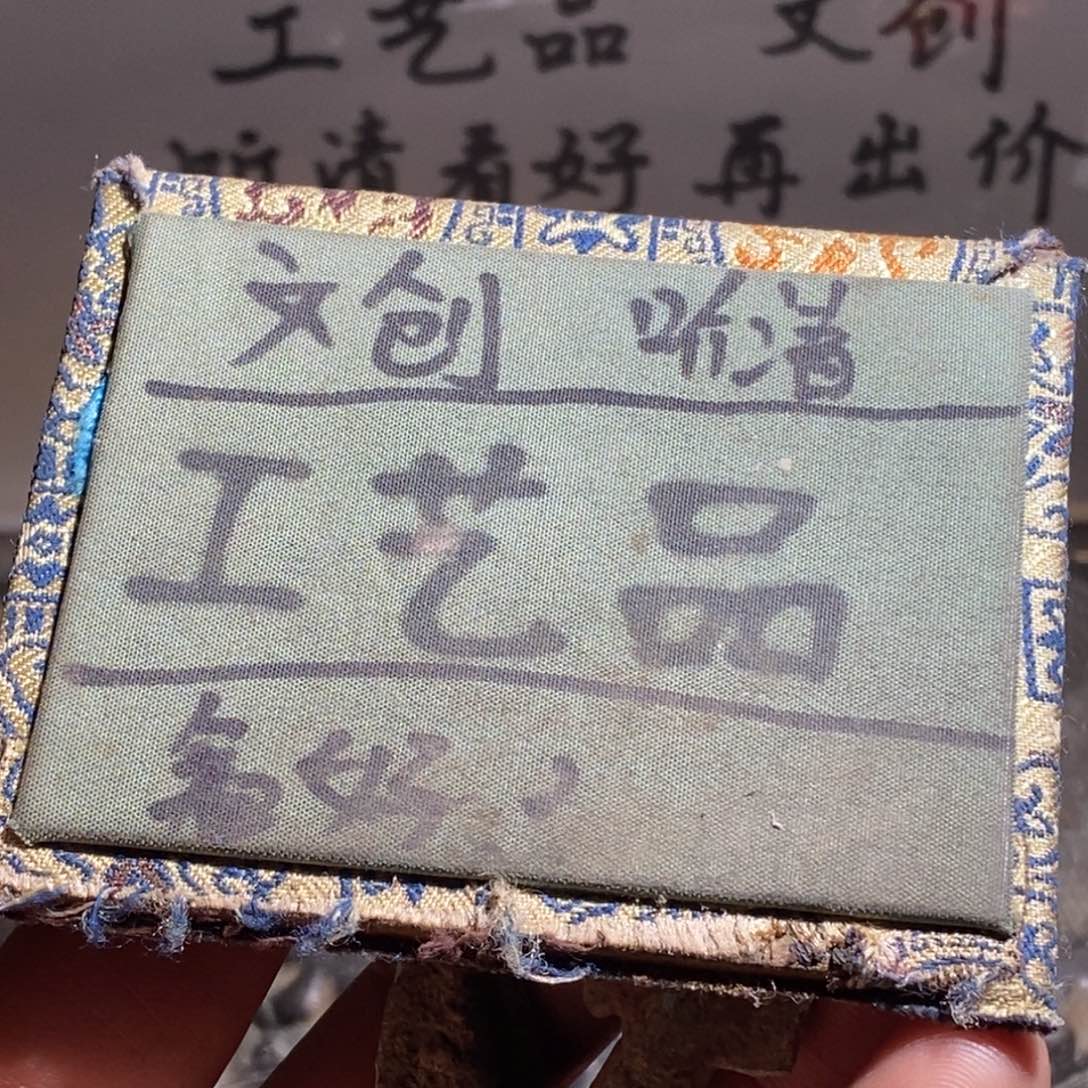 工艺品 文创
听清看好再出价
文创 听清
工艺品
看好